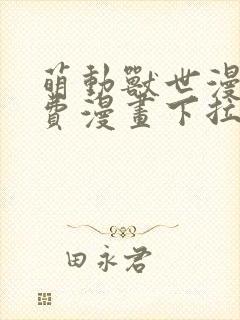 萌動獸世漫
費漫畫下拉
田永君